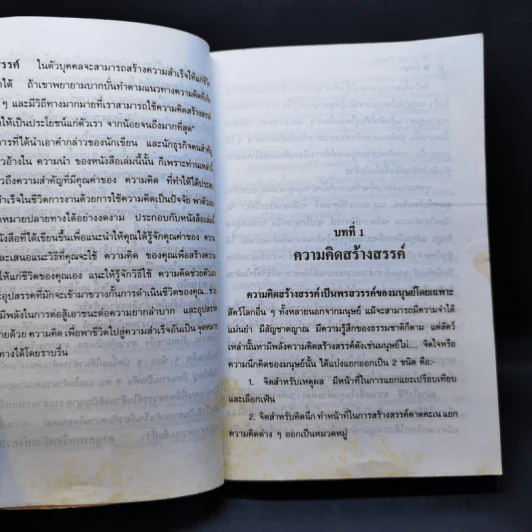 สรรค์ ในตัวบุคคลจะสามารถสร้างความสำเร็จให้แก่ชีวิต
ได้ ถ้าเขาพยายามบากบั่นทำตามแนวทางความคิดที่เกิด
ๆ และมีวิถีทางมากมายที่เราสามารถใช้ความคิดสร้างสรรค์
ให้เป็นประโยชน์แก่ตัวเรา จากน้อยจนถึงมากที่สุด"
การที่ได้นำเอาคำกล่าวของนักเขียน และนักธุรกิจคนสำคัญ
อ้างใน ความนำ ของหนังสือเล่มนี้นั้น ก็เพราะท่านเหล่านี้
ถึงความสำคัญที่มีคุณค่าของ ความคิด ที่ทำให้ได้ประสบ
สำเร็จในชีวิตการงานด้วยการใช้ความคิดเป็นปัจจัย พาตัวเอง
หมายปลายทางได้อย่างงดงาม ประกอบกับหนังสือเล่มนี้
หนังสือที่ได้เขียนขึ้นเพื่อแนะนำให้คุณได้รู้จักคุณค่าของ ความ
และเสนอแนะวิธีที่คุณจะใช้ ความคิด ของคุณเพื่อสร้างความ
ให้แก่ชีวิตของคุณเอง แนะให้รู้จักวิธีใช้ ความคิดช่วยตัวเอง
อุปสรรคที่มักจะเข้ามาขวางกั้นการดำเนินชีวิตของคุณ...ช่วย
มีพลังในการต่อสู้เอาชนะต่อความยากลำบาก และอุปสรรค
ด้วย ความคิด เพื่อพาชีวิตไปสู่ความสำเร็จอันเป็น จุดหมาย
ทางได้โดยราบรื่น
บทที่ 1
ความคิดสร้างสรรค์
ความคิดสร้างสรรค์ เป็นพรสวรรค์ของมนุษย์โดยเฉพาะ
สัตว์โลกอื่น ๆ ทั้งหลายนอกจากมนุษย์ แม้จะสามารถมีความจำได้
แม่นยำ มีสัญชาตญาณ มีความรู้สึกของธรรมชาติก็ตาม แต่สัตว์
เหล่านั้นหามีพลังความคิดสร้างสรรค์ดังเช่นมนุษย์ไม่... จิตใจหรือ
ความนึกคิดของมนุษย์นั้น ได้แบ่งแยกออกเป็น 2 ชนิด คือ:-
1. จิตสำหรับเหตุผล มีหน้าที่ในการแยกแยะเปรียบเทียบ
และเลือกเฟ้น
2. จิตสำหรับคิดนึก ทำหน้าที่ในการสร้างสรรค์คาดคะเน แยก
ความคิดต่าง ๆ ออกเป็นหมวดหมู่